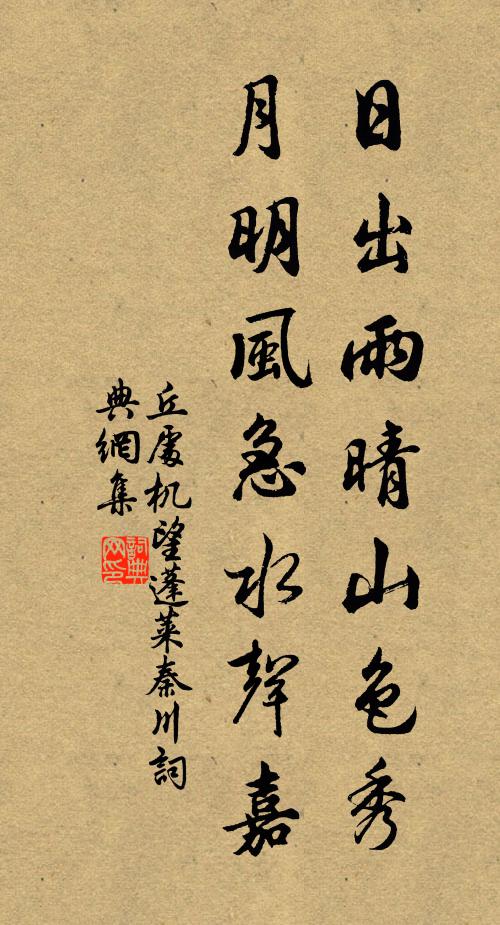 日出雨晴山色秀
月明風急水聲嘉
丘處机望蓬萊秦川詞
典網集
詞典網印